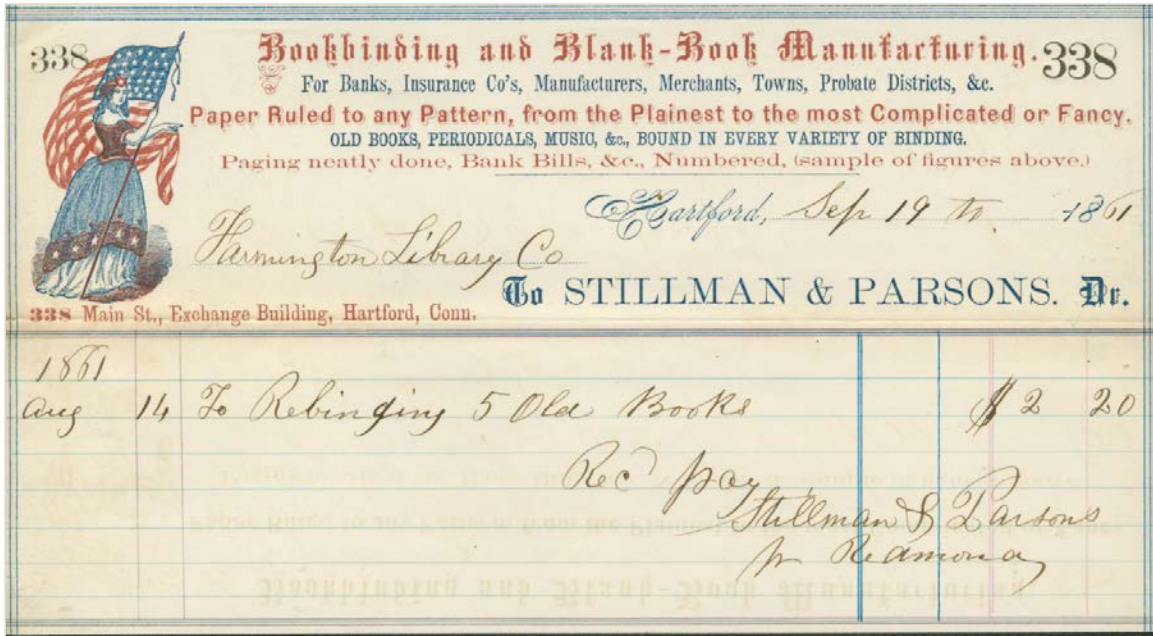 338 Bookbinding and Blank-Book Manufacturing. 338
For Banks, Insurance Co's, Manufacturers, Merchants, Towns, Probate Districts, &c.
Paper Ruled to any Pattern, from the Plainest to the most Complicated or Fancy.
OLD BOOKS, PERIODICALS, MUSIC, &c., BOUND IN EVERY VARIETY OF BINDING.
Paging neatly done, Bank Bills, &c., Numbered, (sample of figures above.)
Hartford, Sep 19 th 1861
Farmington Library Co
To STILLMAN & PARSONS. Dr.
338 Main St., Exchange Building, Hartford, Conn.
1861
Aug 14 To Rebinding 5 Old Books $ 2 20
Rec'd pay
Stillman & Parsons
pr Redmond